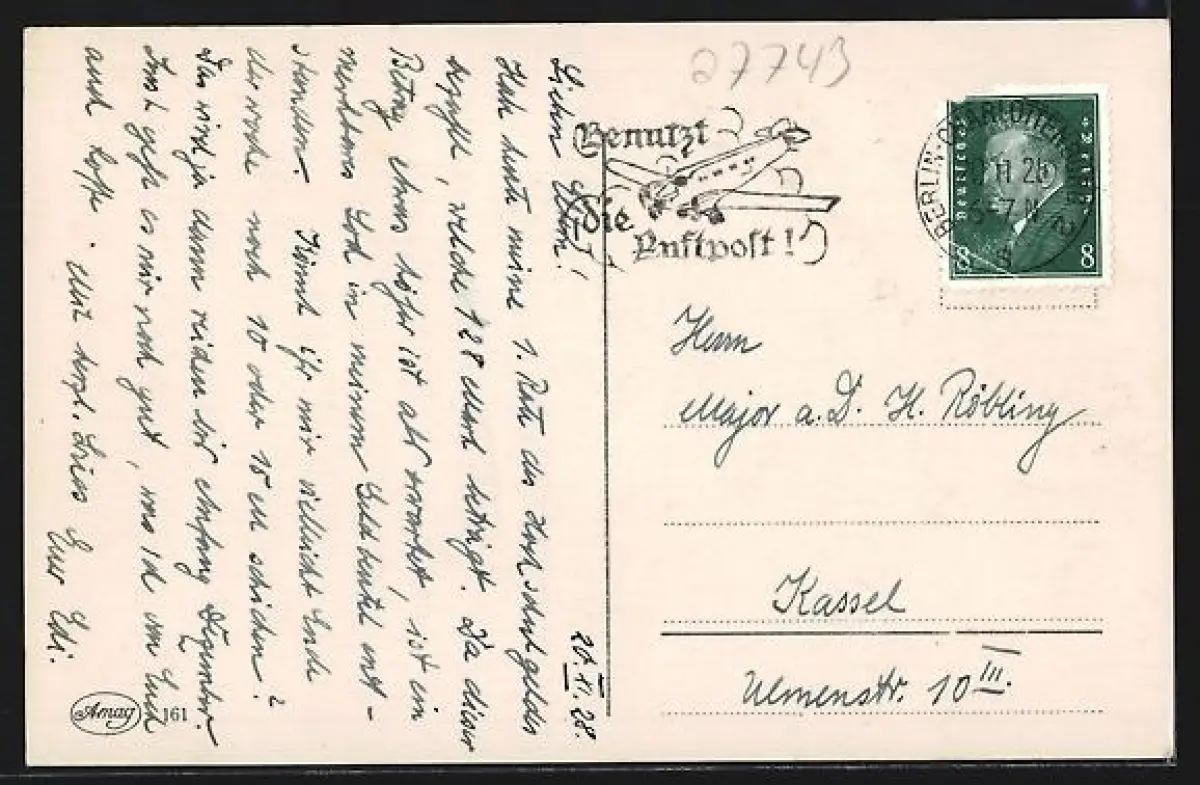 27743
Benutzt
Die
Luftpost!
BERLIN-CHARLOTTENBURG
11 28
6-7 N
Deutsches Reich
8 8
Herrn
Major a. D. H. Röbling
Kassel
Ulmenstr. 10 III.
20.XI.28.
Liebe Eltern!
Hab heute meine 1. Rate des Hochschulgeldes
bezahlt, welche 128 Mark beträgt. Da dieser
Betrag etwas höher ist als erwartet, ist ein
merkbares Loch in meinem Geldbeutel ent-
standen. Könnt ihr mir vielleicht Ende
der Woche noch 10 oder 15 M schicken?
Das wird ja dann reichen bis Anfang Dezember.
Sonst geht es mir noch gut, was ich von Euch
auch hoffe. Mit herzl. Gruß
Euer Edi.
Amag 161